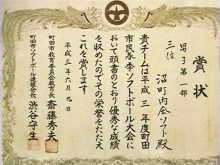 賞状
男子第一部
三位
沼町内会ソフト殿
貴チームは平成三年度町田
市民春季ソフトボール大会に
おいて頭書のとおり優秀な成績
を収めたのでその栄誉をたたえ
これを賞します
平成三年六月九日
町田市教育委員会教育長 斎藤秀
町田市ソフトボール連盟会長 渋谷守生